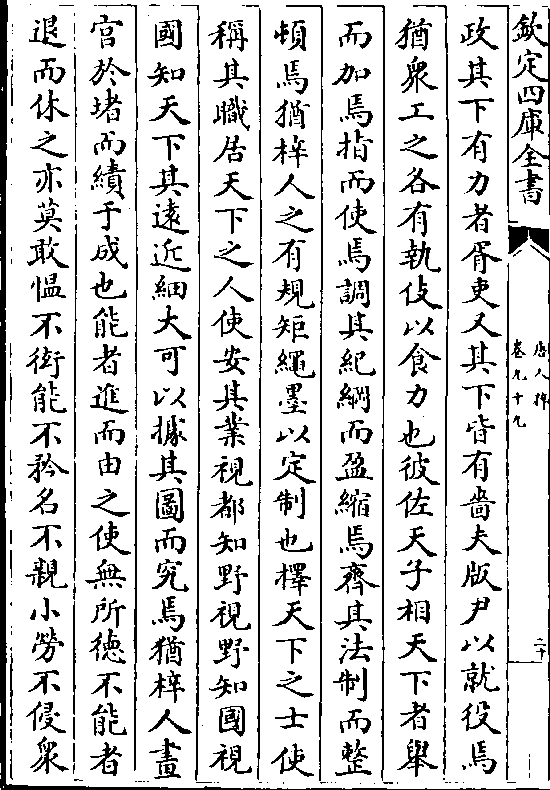 欽定四庫全書
唐人掞
卷九十九
二十
政其下有力者胥吏又其下皆有嗇夫版尹以就役焉
猶衆工之各有執伎以食力也彼佐天子相天下者舉
而加焉指而使焉調其紀綱而盈縮焉齊其法制而整
頓焉猶梓人之有規矩繩墨以定制也擇天下之士使
稱其職居天下之人使安其業視都知野視野知國視
國知天下其遠近細大可以據其圖而究焉猶梓人畫
宮於堵而績于成也能者進而由之使無所徳不能者
退而休之亦莫敢愠不衒能不矜名不親小勞不侵衆